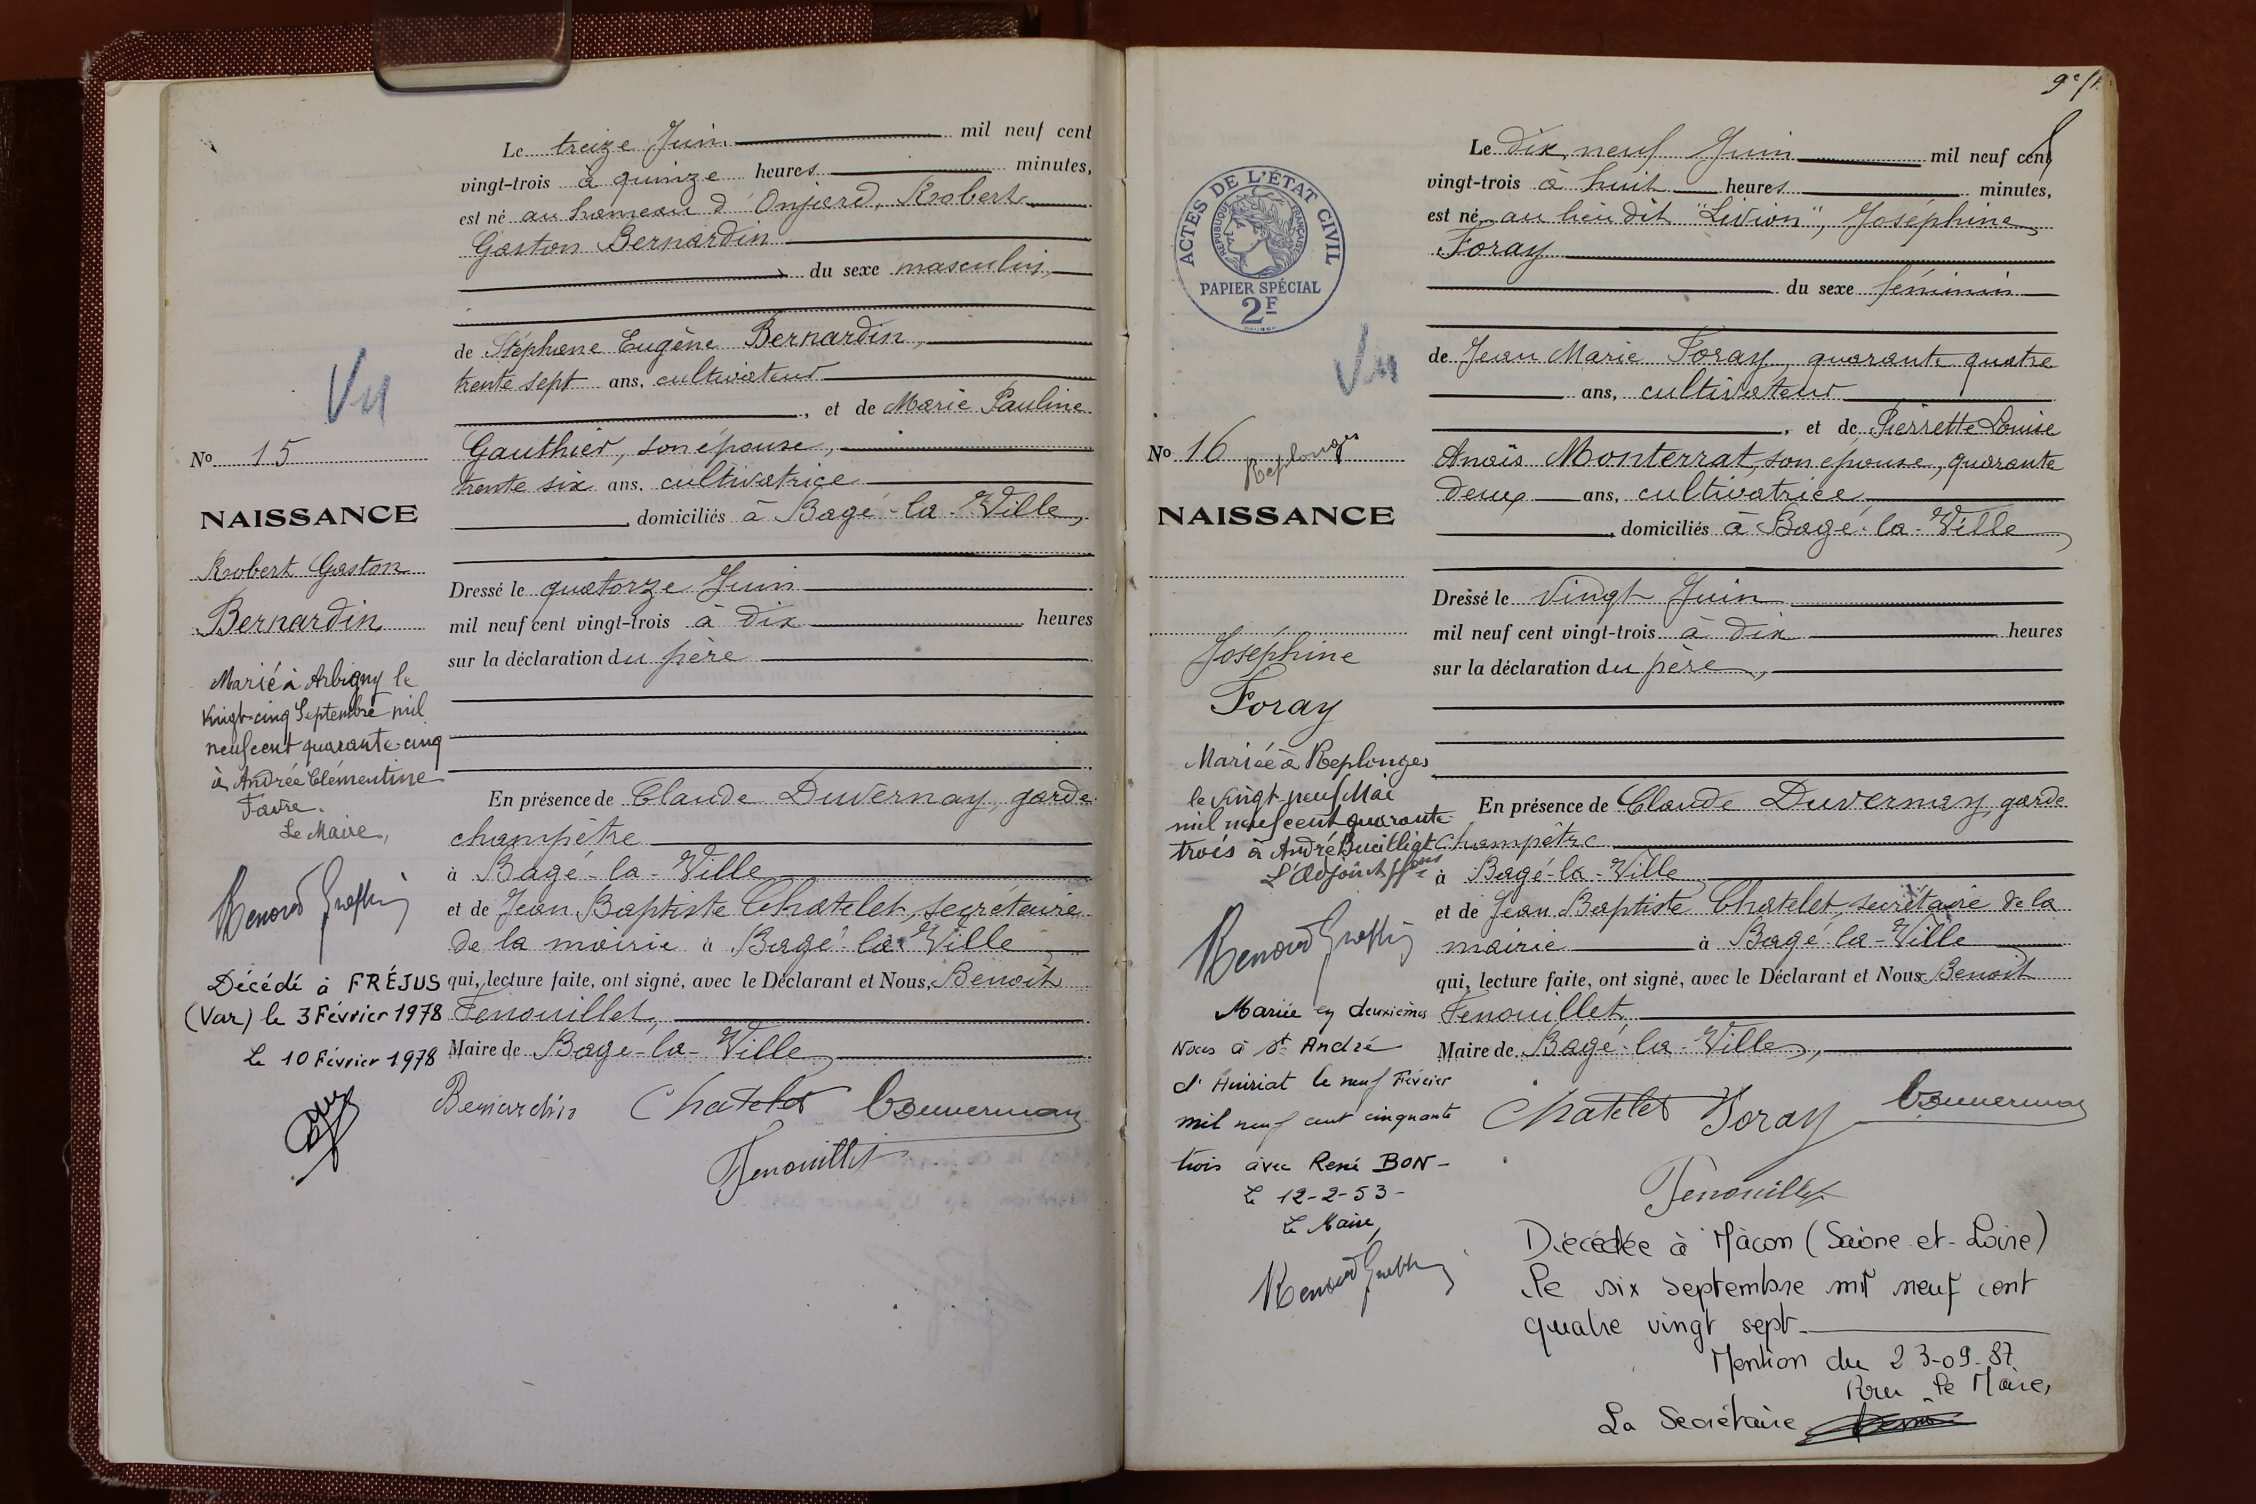 Le treize Juin mil neuf cent
vingt-trois à quinze heures minutes,
est né au hameau d'Onjard, Robert
Gaston Bernardin
du sexe masculin,
de Stéphane Eugène Bernardin,
trente sept ans, cultivateur
, et de Marie Pauline
Gauthier, son épouse,
trente six ans, cultivatrice
, domiciliés à Bagé-la-Ville,
Dressé le quatorze Juin
mil neuf cent vingt-trois à dix heures
sur la déclaration du père
En présence de Claude Duvernay, garde
champêtre
à Bagé-la-Ville
et de Jean Baptiste Chatelet, secrétaire
de la mairie à Bagé-la-Ville
qui, lecture faite, ont signé, avec le Déclarant et Nous, Benoit
Fenouillet,
Maire de Bagé-la-Ville,
Bernardin Chatelet Duvernay
Fenouillet
Vu
No 15
NAISSANCE
Robert Gaston
Bernardin
Marié à Arbigny le
vingt-cinq Septembre mil
neuf cent quarante-cinq
à Andrée Clémentine
Favre.
Le Maire,
Décédé à FRÉJUS
(Var) le 3 Février 1978
Le 10 Février 1978
Le Dix neuf Juin mil neuf cent
vingt-trois à huit heures minutes,
est né au lieu dit "Livion", Joséphine
Foray
du sexe féminin
de Jean Marie Foray, quarante quatre
ans, cultivateur
, et de Pierrette Louise
Anaïs Monterrat, son épouse, quarante
deux ans, cultivatrice
, domiciliés à Bagé-la-Ville,
Dressé le vingt Juin
mil neuf cent vingt-trois à dix heures
sur la déclaration du père,
En présence de Claude Duvernay, garde
champêtre
à Bagé-la-Ville
et de Jean Baptiste Chatelet, secrétaire de la
mairie à Bagé-la-Ville
qui, lecture faite, ont signé, avec le Déclarant et Nous Benoit
Fenouillet,
Maire de Bagé-la-Ville,
Chatelet Foray Duvernay
Fenouillet
Décédée à Mâcon (Saône-et-Loire)
le six septembre mil neuf cent
quatre vingt sept.
Mention du 23-09-87
Pour le Maire,
La Secrétaire
ACTES DE L'ÉTAT CIVIL
RÉPUBLIQUE FRANÇAISE
PAPIER SPÉCIAL
2F
Vu
No 16 Replonges
NAISSANCE
Joséphine
Foray
Mariée à Replonges
le vingt-neuf Mai
mil neuf cent quarante
trois à André Buiilliat
L'Adjoint
Mariée en deuxièmes
Noces à St André
d'Huiriat le neuf Février
mil neuf cent cinquante
trois avec René BON-
Le 12-2-53-
Le Maire,